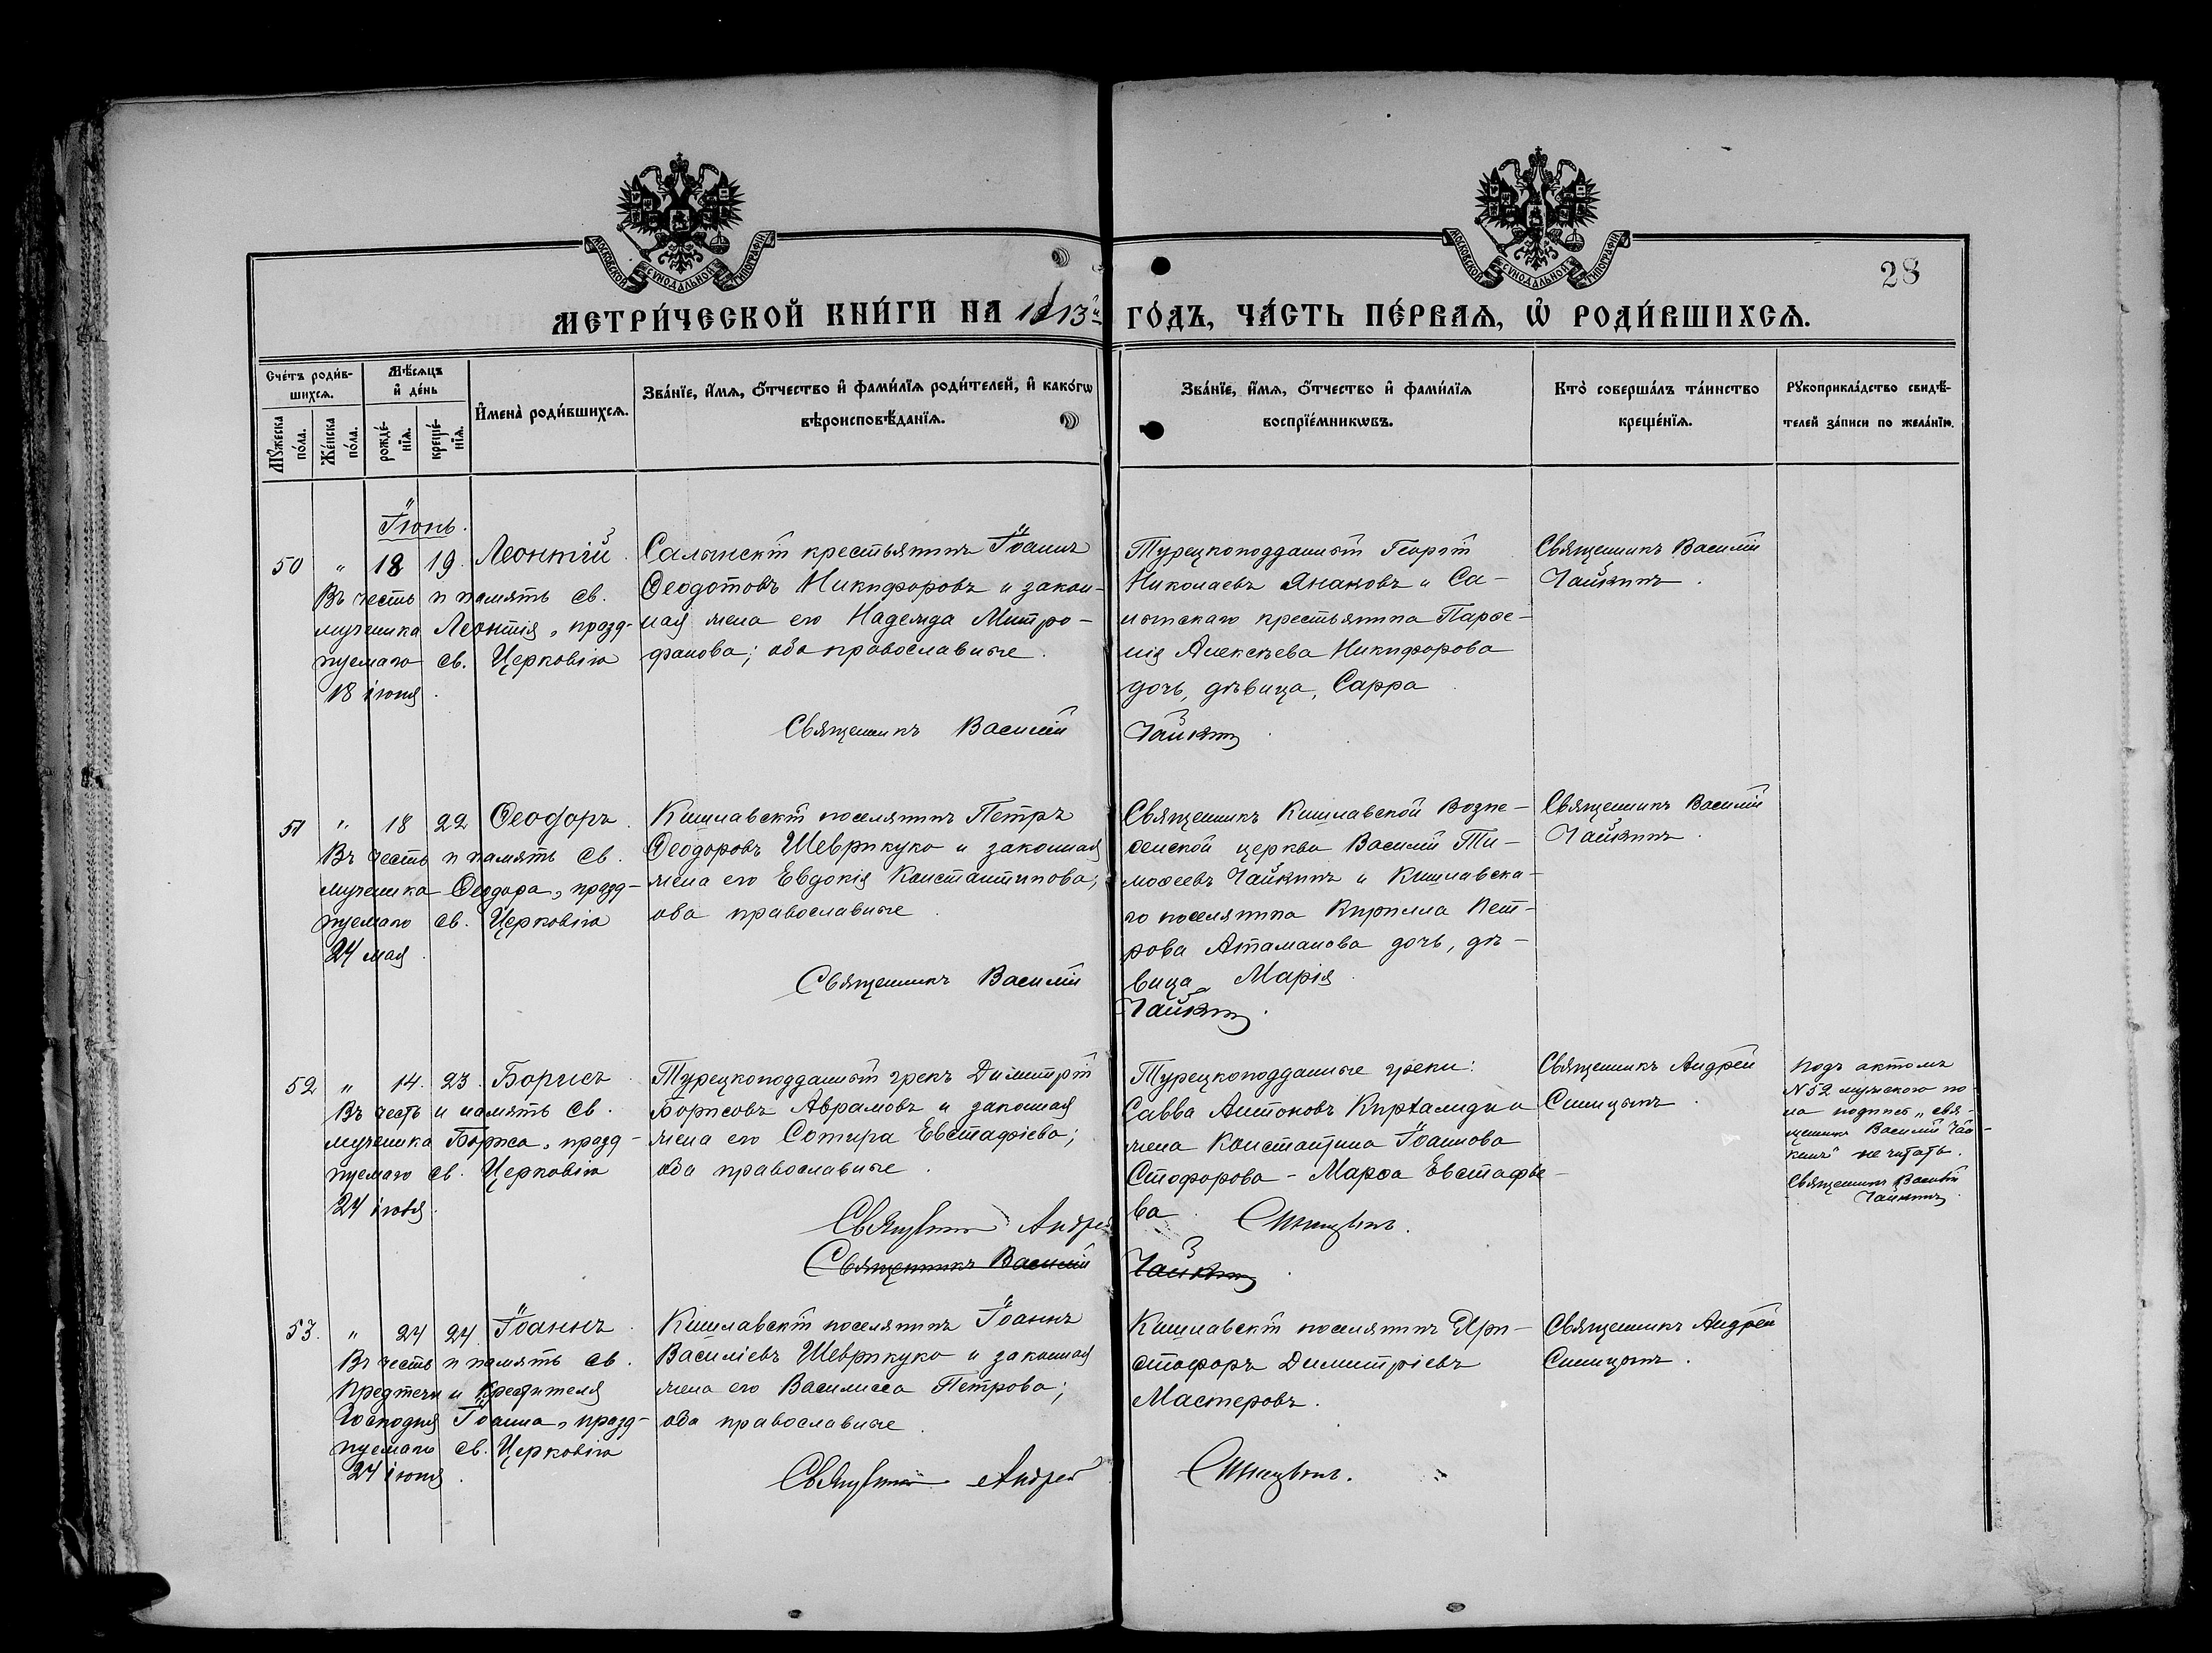 МОСКОВСКОЙ СѴНОДАЛЬНОЙ ТИПОГРАФІИ
МОСКОВСКОЙ СѴНОДАЛЬНОЙ ТИПОГРАФІИ
28
МЕТРИ́ЧЕСКОЙ КНИ́ГИ НА 1913й ГО́ДЪ, ЧА́СТЬ ПЕ́РВАЯ, Ѡ҆ РОДИ́ВШИХСЯ.
Сче́тъ роди́в-
шихся.
Мѣ́сяцъ
и҆ де́нь
Мꙋ́жеска
по́ла.
Же́нска
по́ла.
рожде́-
нїя.
креще́-
нїя.
И҆мена̀ роди́вшихся.
Зва́нїе, и҆́мя, ѻ҆́тчество и҆ фами́лїя роди́телей, и҆ како́гѡ
вѣроисповѣ́данїя.
Зва́нїе, и҆́мя, ѻ҆́тчество и҆ фами́лїя
воспрїе́мникѡвъ.
Кто̀ соверша́лъ та́инство
креще́нїя.
Рꙋкоприкла́дство свидѣ́-
телей за́писи по жела́нїю.
Іюнь.
50 " 18 19. Леонтій.
Въ честь и память св.
мученика Леонтія, празд-
нуемаго св. Церковію
18 іюня.
Салынскій крестьянинъ Іоаннъ
Ѳеодотовъ Никифоровъ и закон-
ная жена его Надежда Митро-
фанова; оба православные.
Турецкоподданный Георгій
Николаевъ Янаковъ и Са-
лынскаго крестьянина Парѳе-
нія Алексѣева Никифорова
дочь, дѣвица, Сарра
Священникъ Василій
Чайкинъ.
Священникъ Василій Чайкинъ.
51 " 18 22 Ѳеодоръ.
Въ честь и память св.
мученика Ѳеодора, празд-
нуемаго св. Церковію
24 мая.
Кишлавскій поселянинъ Петръ
Ѳеодоровъ Шеврикуко и законная
жена его Евдокія Константинова;
оба православные.
Священникъ Кишлавской Возне-
сенской церкви Василій Ти-
моѳеевъ Чайкинъ и Кишлавска-
го поселянина Кирилла Пет-
рова Атаманова дочь, дѣ-
вица, Марія.
Священникъ Василій
Чайкинъ.
Священникъ Василій Чайкинъ.
52 " 14. 23. Борисъ.
Въ честь и память св.
мученика Бориса, празд-
нуемаго св. Церковію
24 іюля.
Турецкоподданный грекъ Димитрій
Борисовъ Аврамовъ и законная
жена его Сотира Евстафіева;
оба православные.
Турецкоподданные греки:
Савва Антоновъ и
жена Константина Іоаннова
Стофорова - Марѳа Евстафіе-
ва.
Священникъ Андрей
Синицынъ.
Подъ актомъ
N 52 мужского по-
ла подпись „свя-
щенникъ Василій Чай-
кинъ" не читать.
Священникъ Василій
Чайкинъ.
Священникъ Андрей Синицынъ.
Священникъ Василій Чайкинъ.
53. " 24 24 Іоаннъ.
Въ честь и память св.
Предтечи и Крестителя
Господня Іоанна, празд-
нуемаго св. Церковію
24 іюня.
Кишлавскій поселянинъ Іоаннъ
Василіевъ Шеврикуко и законная
жена его Василисса Петрова;
оба православные.
Кишлавскій поселянинъ Хри-
стофоръ Димитріевъ
Мастеровъ.
Священникъ Андрей
Синицынъ.
Священникъ Андрей Синицынъ.